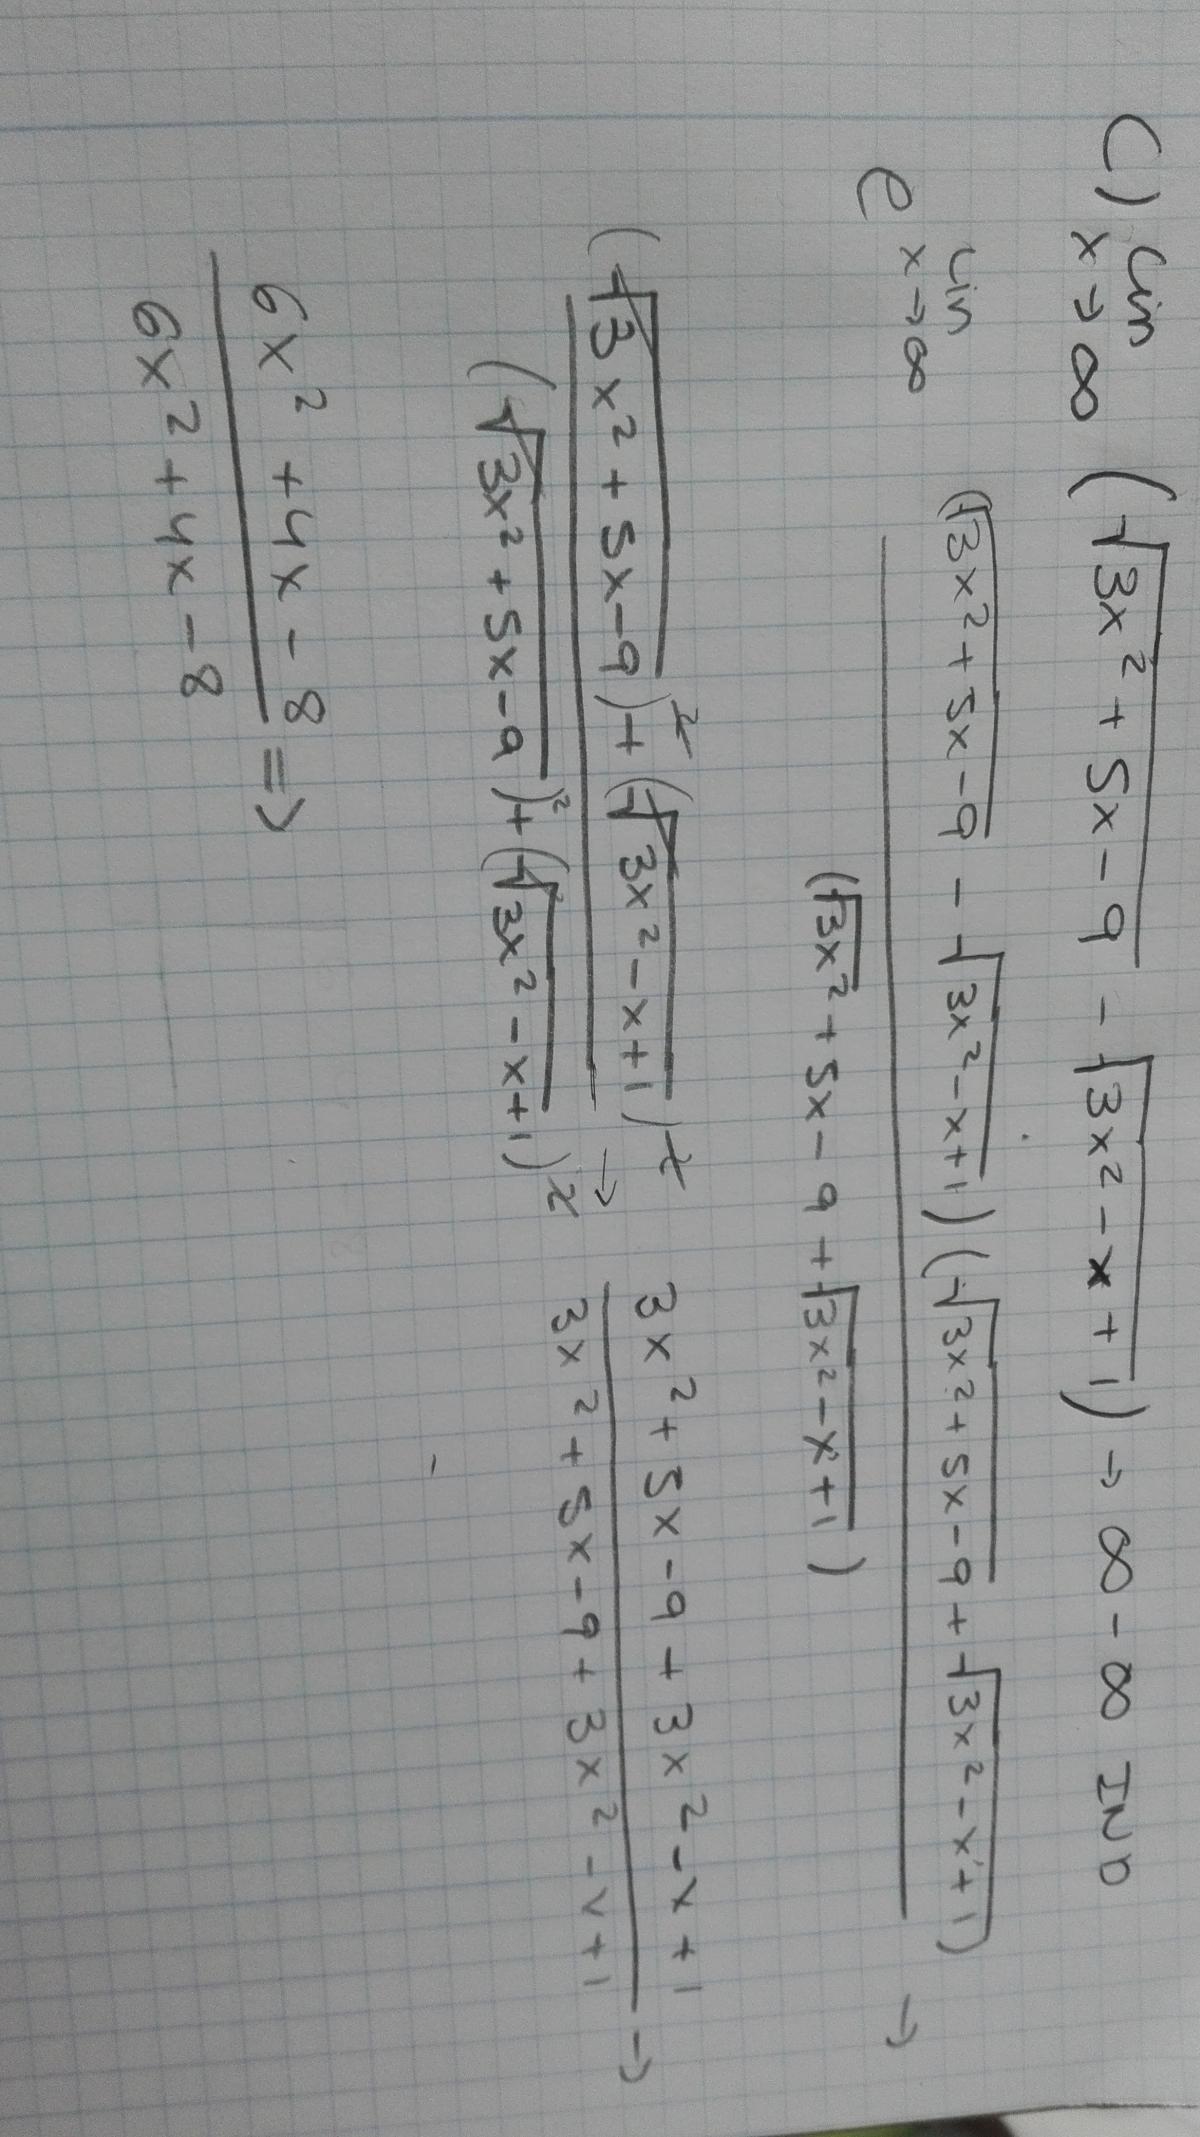 C) lim (√3x² + 5x - 9 - √3x² - x + 1) → ∞ - ∞ IND
x→∞
e lim (√3x² + 5x - 9 - √3x² - x + 1) (√3x² + 5x - 9 + √3x² - x + 1) →
x→∞
(√3x² + 5x - 9 + √3x² - x + 1)
(√3x² + 5x - 9)² + (√3x² - x + 1)² → 3x² + 5x - 9 + 3x² - x + 1 →
(√3x² + 5x - 9)² + (√3x² - x + 1)² 3x² + 5x - 9 + 3x² - x + 1
6x² + 4x - 8 =>
6x² + 4x - 8